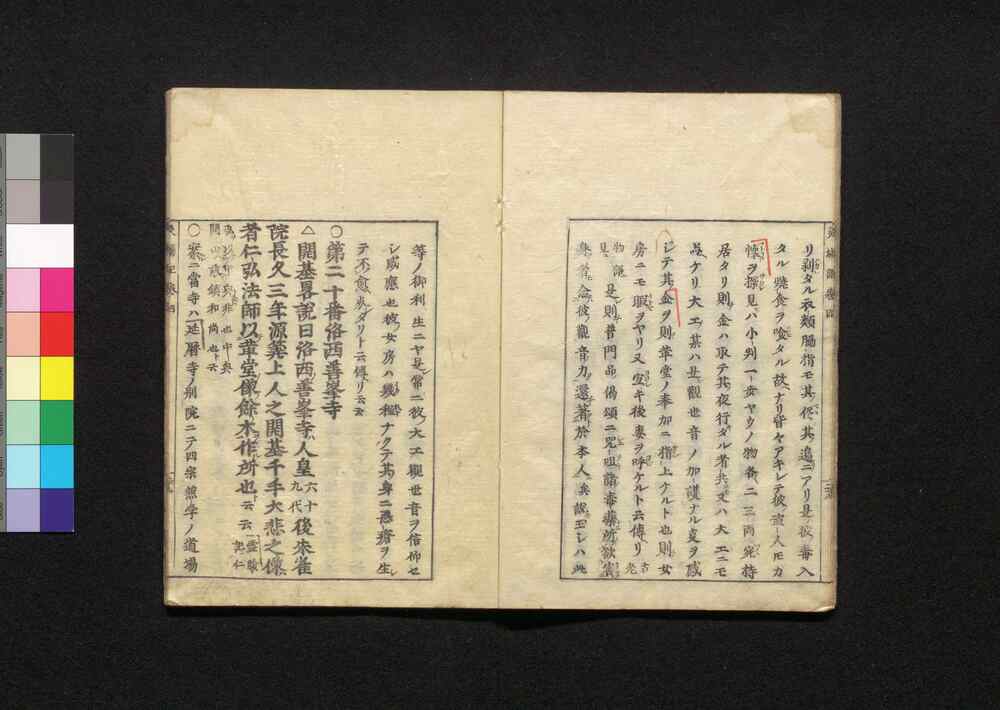 リ剥タル衣類脇指モ其侭其邉ニアリ是彼毒入
タル燒食ヲ喰タル故ナリ皆ヤアキレテ彼盗人モカ
懐ヲ探見ハ小判一
居タリ則金ハ取テ其夜行タル者共又ハ大工ニモ
ケリ大工其ハ是觀世音ノ加護ナル支ヲ感
シテ其金ヲ則革堂ノ奉加ニ指上ケルト也則女
房ニモ暇ヲヤリ又宜キ後妻ヲ呼ケルト云傳リ
是則普門品偈頌ニ咒咀諸毒藥所欲害
身者念彼觀音力還著於本人ト説玉シハ此
等ノ御利生ニヤ是常ニ彼大工觀世音ヲ信仰セ
シ感應也彼女房ハ幾程ナクテ其身ニ悪瘡ヲ生
テ不愈死タリト云傳リ云云
○第二十番洛西善峯寺
△開基畧説曰洛西善峯寺人皇六十九代後朱雀
院長久三年源算上人之開基千手大悲之像
者仁弘法師以革堂像餘木作所也云云
○案ニ當寺ハ延暦寺ノ別院ニテ四宗兼学ノ道場